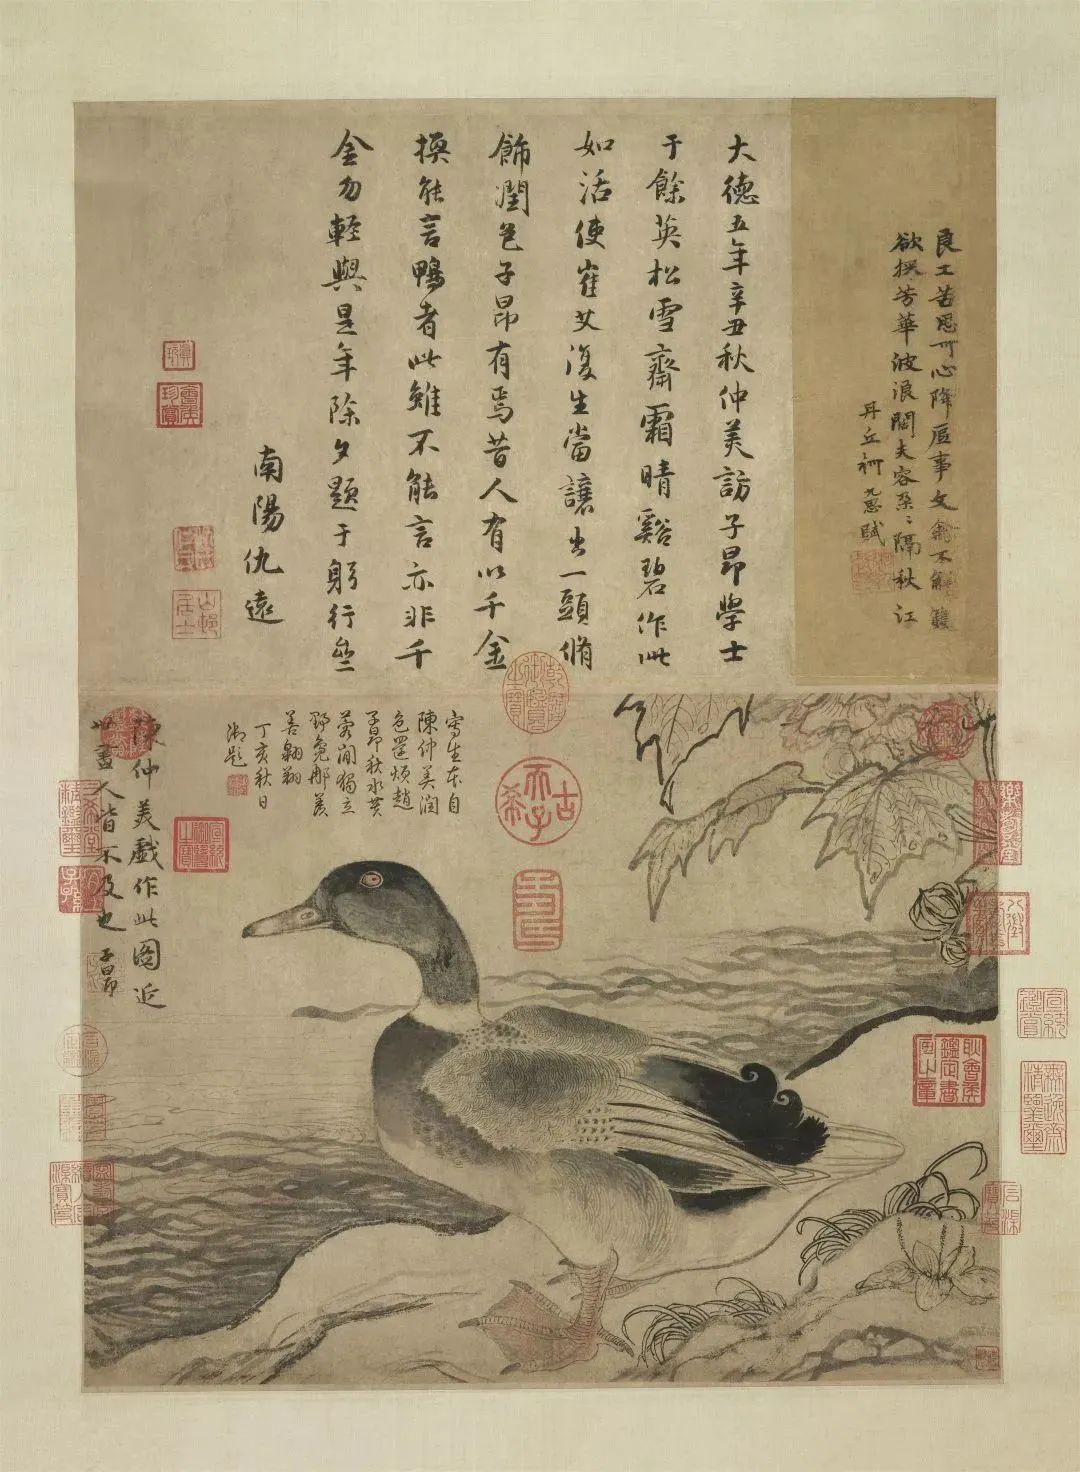 良工苦思可心降底事文禽不解雙
欲撰芳華波浪闊夫容朶〻隔秋江
丹丘柯九思賦
大德五年辛丑秋仲美訪子昂學士
于餘英松雪齋霜晴谿碧作此
如活使崔艾復生當讓出一頭脩
飾潤色子昂有焉昔人有以千金
換能言鴨者此雖不能言亦非千
金勿輕與是年除夕題于躬行齋
南陽仇遠
寫生本自
陳仲美潤
色還煩趙
子昂秋水芙
蓉閒獨立
野鳧那羨
善翱翔
丁亥秋日
御題
陳仲美戲作此圖近
世畫人皆不及也子昂
古希天子
山邨居士
耿會侯鑑定書畫之章